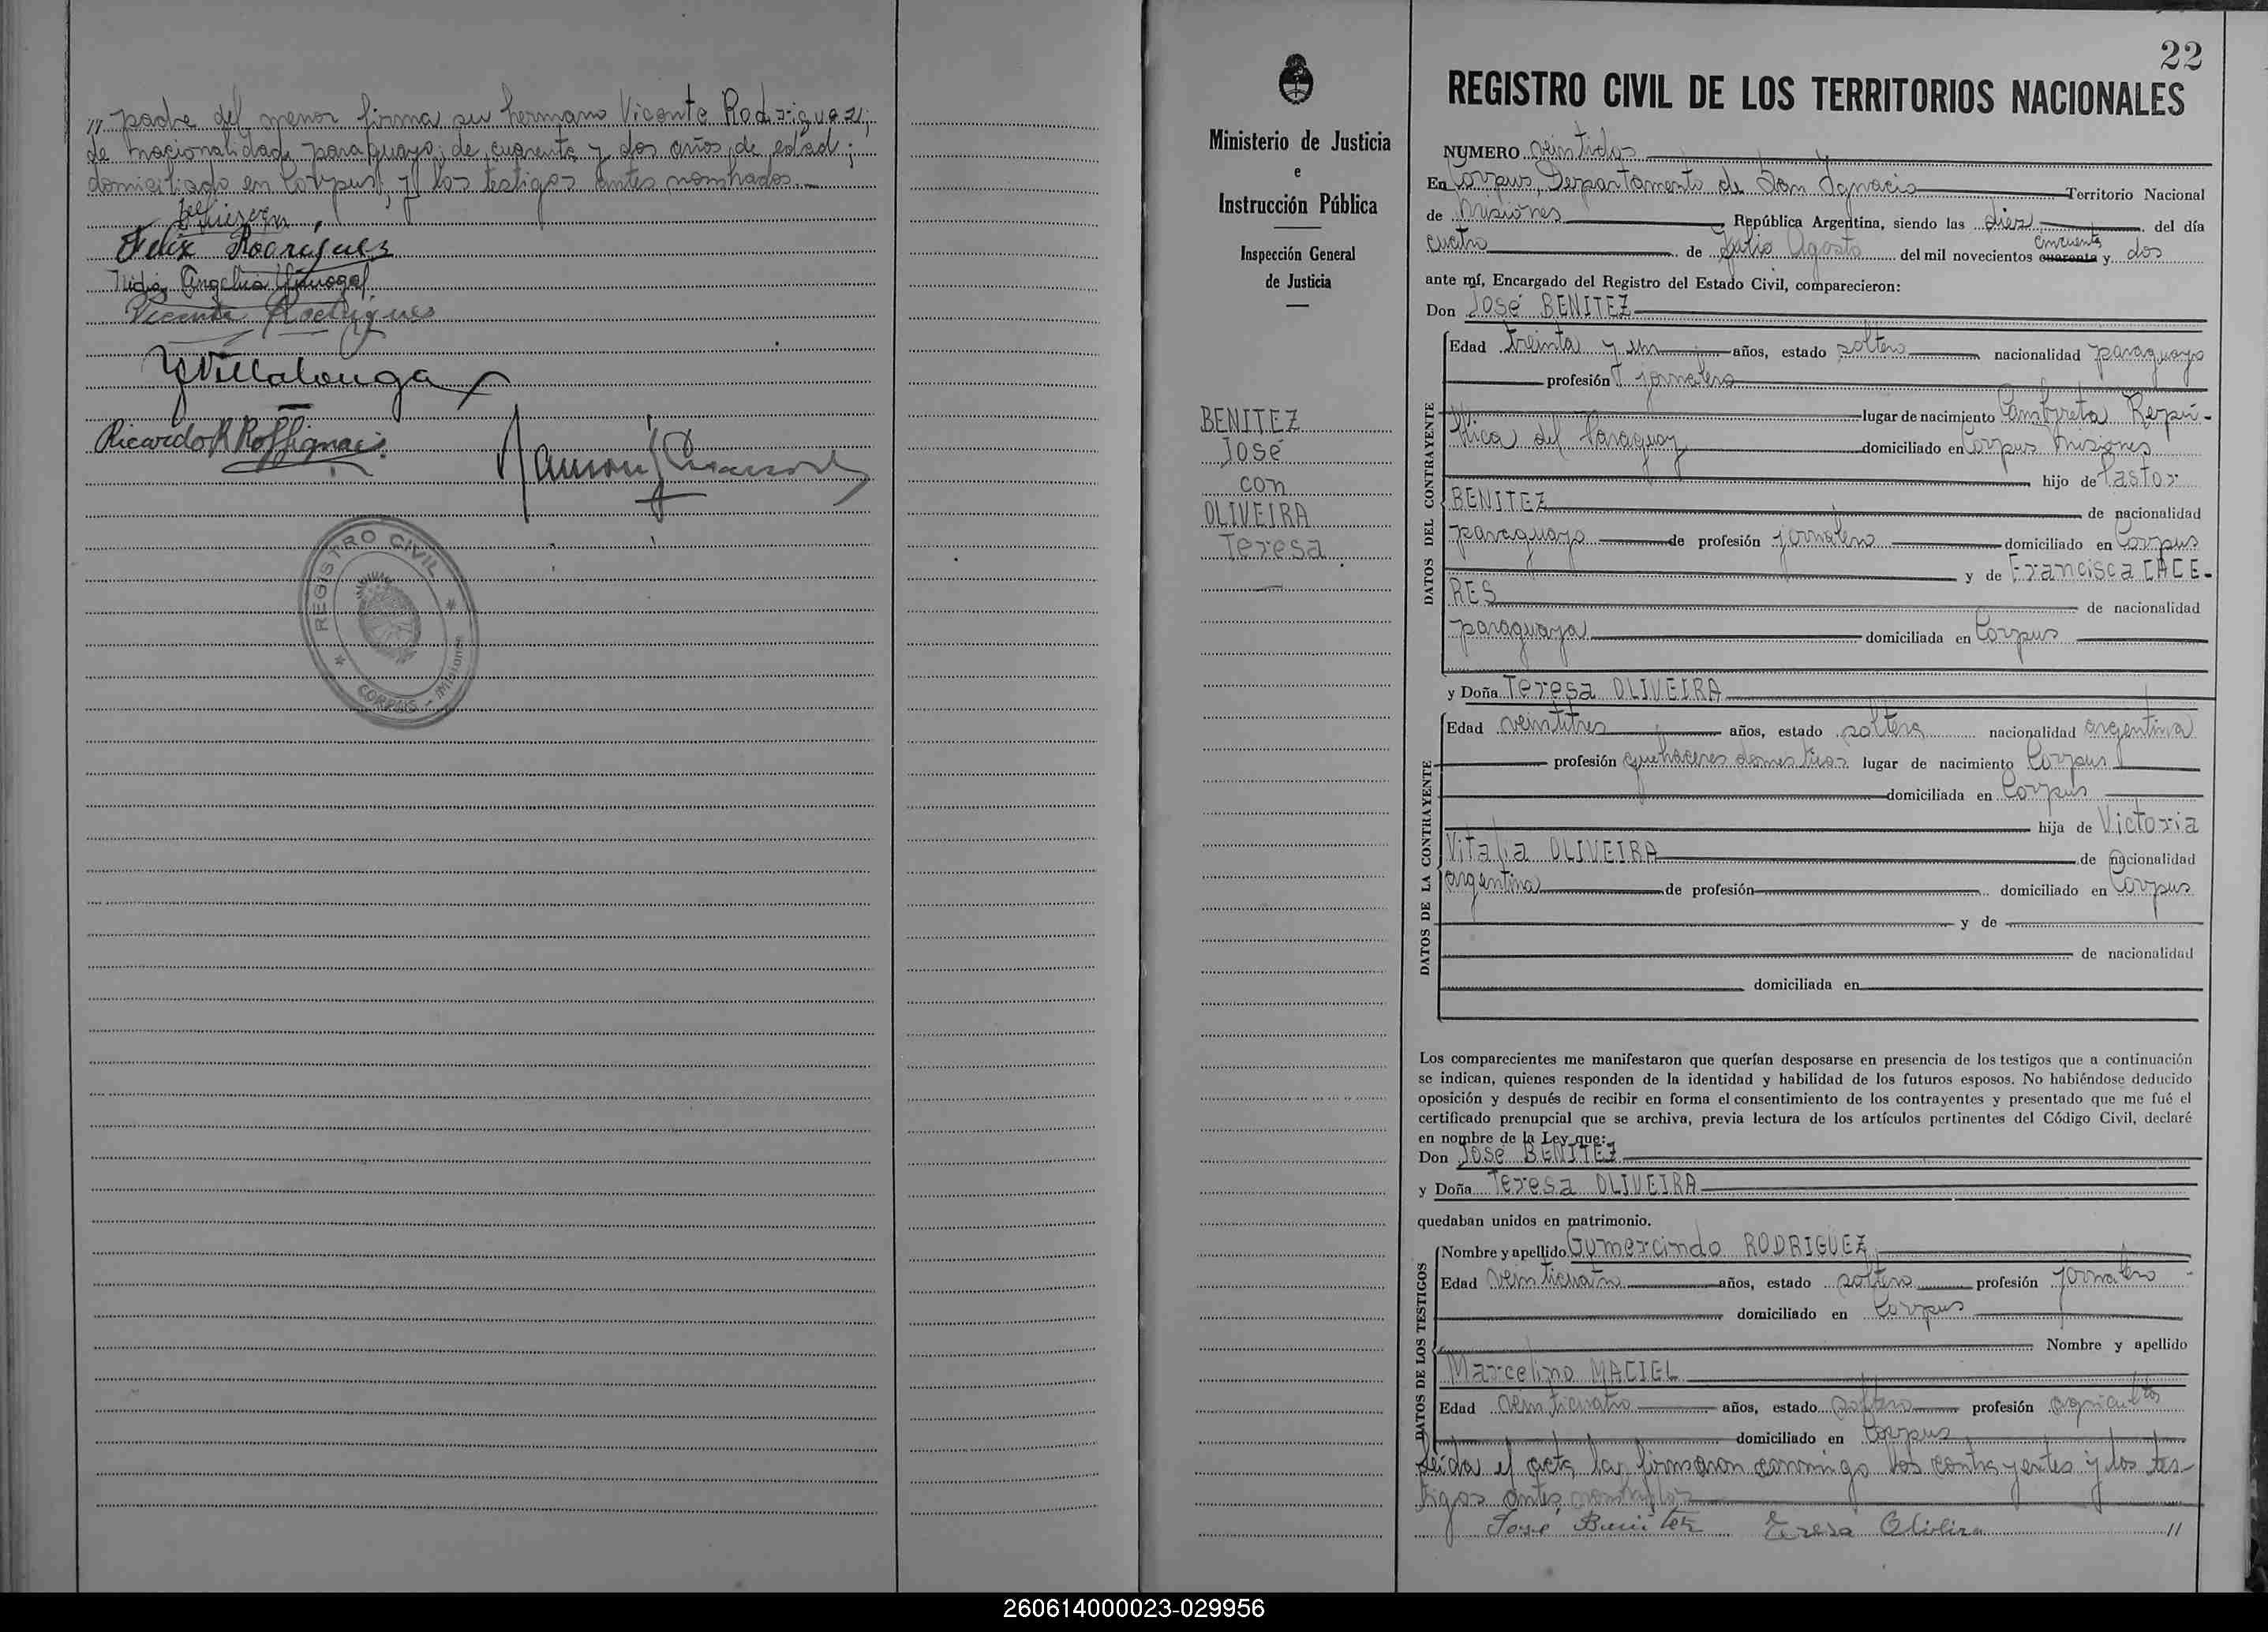 // padre del menor firma su hermano Vicente Rodriguez,
de nacionalidad paraguayo, de cuarenta y dos años de edad,
domiciliado en Corpus, y los testigos antes nombrados.
Felix Rodriguez
Nidia Angelica
Vicente Rodrigues
YVillalonga
Ricardo R Roffignac
Ramón
REGISTRO CIVIL
CORPUS - Misiones
Ministerio de Justicia
e
Instrucción Pública
Inspección General
de Justicia
BENITEZ
José
con
OLIVEIRA
Teresa
22
REGISTRO CIVIL DE LOS TERRITORIOS NACIONALES
NUMERO veintidos
En Corpus, Departamento de San Ignacio Territorio Nacional
de Misiones República Argentina, siendo las diez del día
cincuenta
cuatro de Julio Agosto del mil novecientos cuarenta y dos
ante mí, Encargado del Registro del Estado Civil, comparecieron:
Don José BENITEZ
DATOS DEL CONTRAYENTE
Edad treinta y un años, estado soltero nacionalidad paraguayo
profesión jornalero
lugar de nacimiento Cambyreta Repú-
blica del Paraguay domiciliado en Corpus Misiones
hijo de Pastor
BENITEZ de nacionalidad
paraguayo de profesión jornalero domiciliado en Corpus
y de Francisca CACE-
RES de nacionalidad
paraguaya domiciliada en Corpus
y Doña Teresa OLIVEIRA
DATOS DE LA CONTRAYENTE
Edad veintitres años, estado soltera nacionalidad argentina
profesión quehaceres domesticos lugar de nacimiento Corpus
domiciliada en Corpus
hija de Victoria
Vitalia OLIVEIRA de nacionalidad
argentina de profesión domiciliado en Corpus
y de
de nacionalidad
domiciliada en
Los comparecientes me manifestaron que querían desposarse en presencia de los testigos que a continuación
se indican, quienes responden de la identidad y habilidad de los futuros esposos. No habiéndose deducido
oposición y después de recibir en forma el consentimiento de los contrayentes y presentado que me fué el
certificado prenupcial que se archiva, previa lectura de los artículos pertinentes del Código Civil, declaré
en nombre de la Ley que:
Don José BENITEZ
y Doña Teresa OLIVEIRA
quedaban unidos en matrimonio.
DATOS DE LOS TESTIGOS
Nombre y apellido Gumercindo RODRIGUEZ
Edad veinticuatro años, estado soltero profesión jornalero
domiciliado en Corpus
Nombre y apellido
Marcelino MACIEL
Edad veinticuatro años, estado soltero profesión agricultor
domiciliado en Corpus
Leida el acta la firmaron conmigo los contrayentes y los tes-
tigos antes nombrados
José Benitez Teresa Oliveira //
260614000023-029956